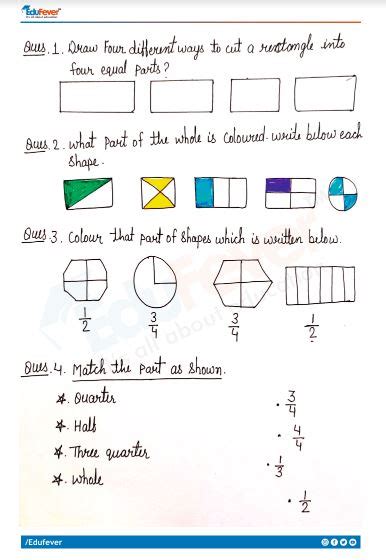 EduFever
It's all about education!
Ques.1. Draw Four different ways to cut a rectangle into
four equal parts?
Ques.2. what part of the whole is coloured. write below each
shape.
Ques 3. Colour that part of shapes which is written below.
1/2 3/4 3/4 1/2
EduFever
Ques.4. Match the part as shown.
☆. Quarter
· 3/4
☆. Half
· 4/4
☆. Three quarter
· 1/3
☆. Whole
· 1/2
/Edufever